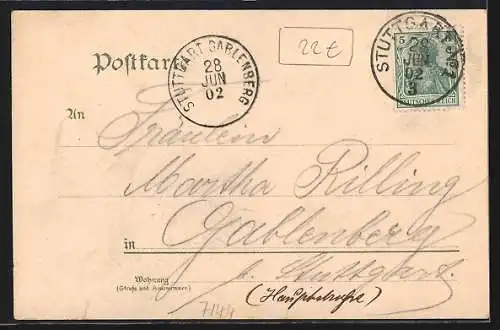 Postkarte
STUTTGART GABLENBERG
28
JUN
02
22 €
STUTTGART
28
JUN
02
3
5
DEUTSCHES REICH
An
Fräulein
Martha Rilling
in Gablenberg
b. Stuttgart.
Wohnung
(Straße und Hausnummer)
(Hauptstraße)